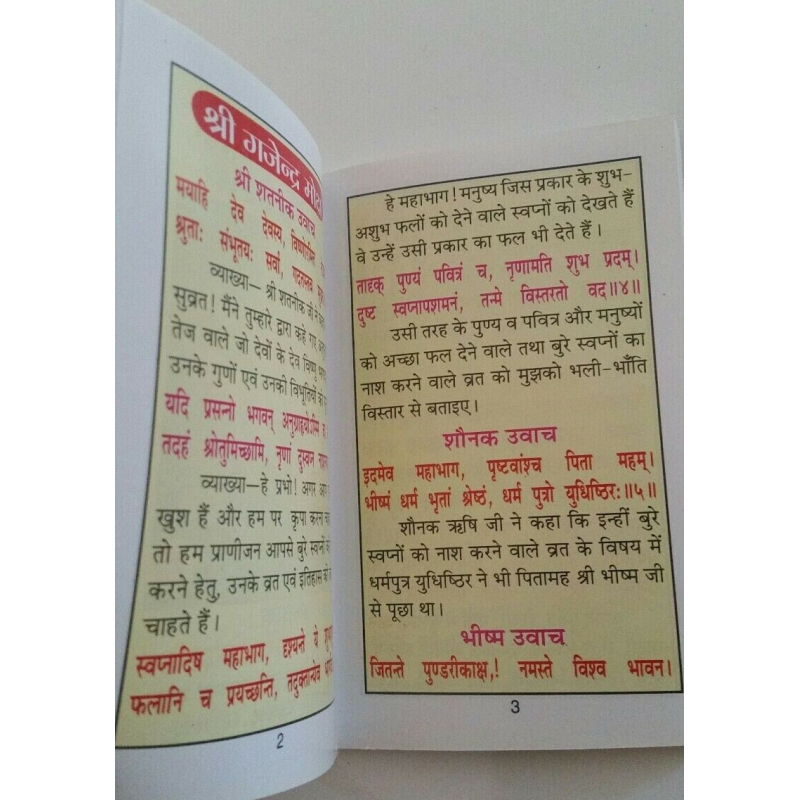 श्री गजेन्द्र
श्री शतनीक उवाच
मयाहि देव देवस्य, विष्णोरमित
श्रुताः संभूतयः सर्वा, गदतस्तव
व्याख्या— श्री शतनीक जी ने
सुव्रत! मैंने तुम्हारे द्वारा कहे गए
तेज वाले जो देवों के देव विष्णु
उनके गुणों एवं उनकी विभूतियों को
यदि प्रसन्नो भगवन् अनुग्राह्योऽस्मि
तदहं श्रोतुमिच्छामि, नृणां दुःस्वप्न
व्याख्या—हे प्रभो! अगर आप
खुश हैं और हम पर कृपा करना
तो हम प्राणीजन आपसे बुरे स्वप्नों को
करने हेतु, उनके व्रत एवं इतिहास को
चाहते हैं।
स्वप्नादिष महाभाग, दृश्यन्ते ये
फलानि च प्रयच्छन्ति, तदुक्तान्येव
2
हे महाभाग! मनुष्य जिस प्रकार के शुभ-
अशुभ फलों को देने वाले स्वप्नों को देखते हैं
वे उन्हें उसी प्रकार का फल भी देते हैं।
तादृक् पुण्यं पवित्रं च, नृणामति शुभ प्रदम्।
दुष्ट स्वप्नापशमनं, तन्मे विस्तरतो वद्॥४॥
उसी तरह के पुण्य व पवित्र और मनुष्यों
को अच्छा फल देने वाले तथा बुरे स्वप्नों का
नाश करने वाले व्रत को मुझको भली-भाँति
विस्तार से बताइए।
शौनक उवाच
इदमेव महाभाग, पृष्टवांश्च पिता महम्।
भीष्मं धर्म भृतां श्रेष्ठं, धर्म पुत्रो युधिष्ठिरः॥५॥
शौनक ऋषि जी ने कहा कि इन्हीं बुरे
स्वप्नों को नाश करने वाले व्रत के विषय में
धर्मपुत्र युधिष्ठिर ने भी पितामह श्री भीष्म जी
से पूछा था।
भीष्म उवाच
जितन्ते पुण्डरीकाक्ष,! नमस्ते विश्व भावन।
3